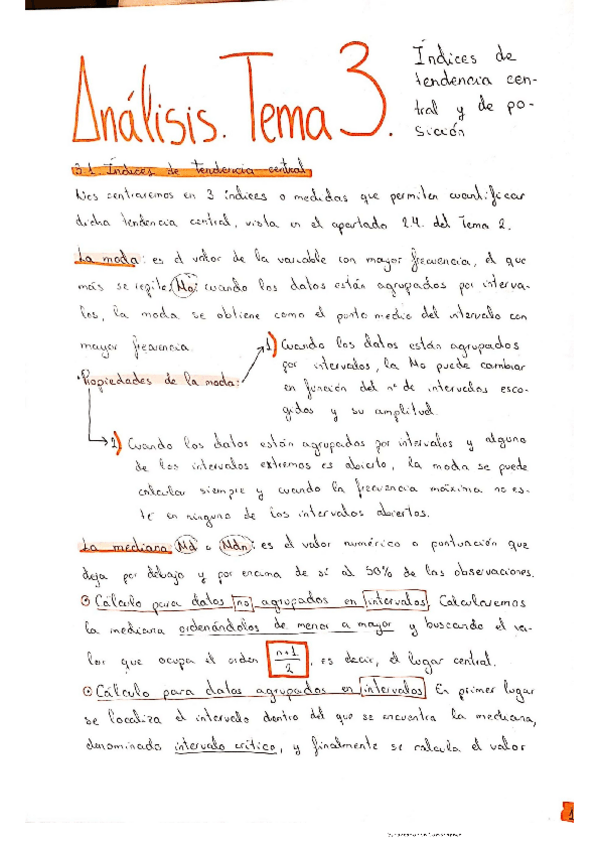 Análisis. Tema 3.
Índices de
tendencia cen-
tral y de po-
sición
3.1. Índices de tendencia central
Nos centraremos en 3 índices o medidas que permiten cuantificar
dicha tendencia central, vista en el apartado 2.4. del Tema 2.
La moda: es el valor de la variable con mayor frecuencia, el que
más se repite. Mo: cuando los datos están agrupados por interva-
los, la moda se obtiene como el punto medio del intervalo con
mayor frecuencia.
· Propiedades de la moda:
1) Cuando los datos están agrupados
por intervalos, la Mo puede cambiar
en función del nº de intervalos esco-
gidos y su amplitud.
2) Cuando los datos están agrupados por intervalos y alguno
de los intervalos extremos es abierto, la moda se puede
calcular siempre y cuando la frecuencia máxima no es-
té en ninguno de los intervalos abiertos.
La mediana Md o Mdn: es el valor numérico o puntuación que
deja por debajo y por encima de sí al 50% de las observaciones.
Cálculo para datos no agrupados en intervalos. Calcularemos
la mediana ordenándolos de menor a mayor y buscando el va-
lor que ocupa el orden n+1/2, es decir, el lugar central.
Cálculo para datos agrupados en intervalos. En primer lugar
se localiza el intervalo dentro del que se encuentra la mediana,
denominado intervalo crítico, y finalmente se calcula el valor
1